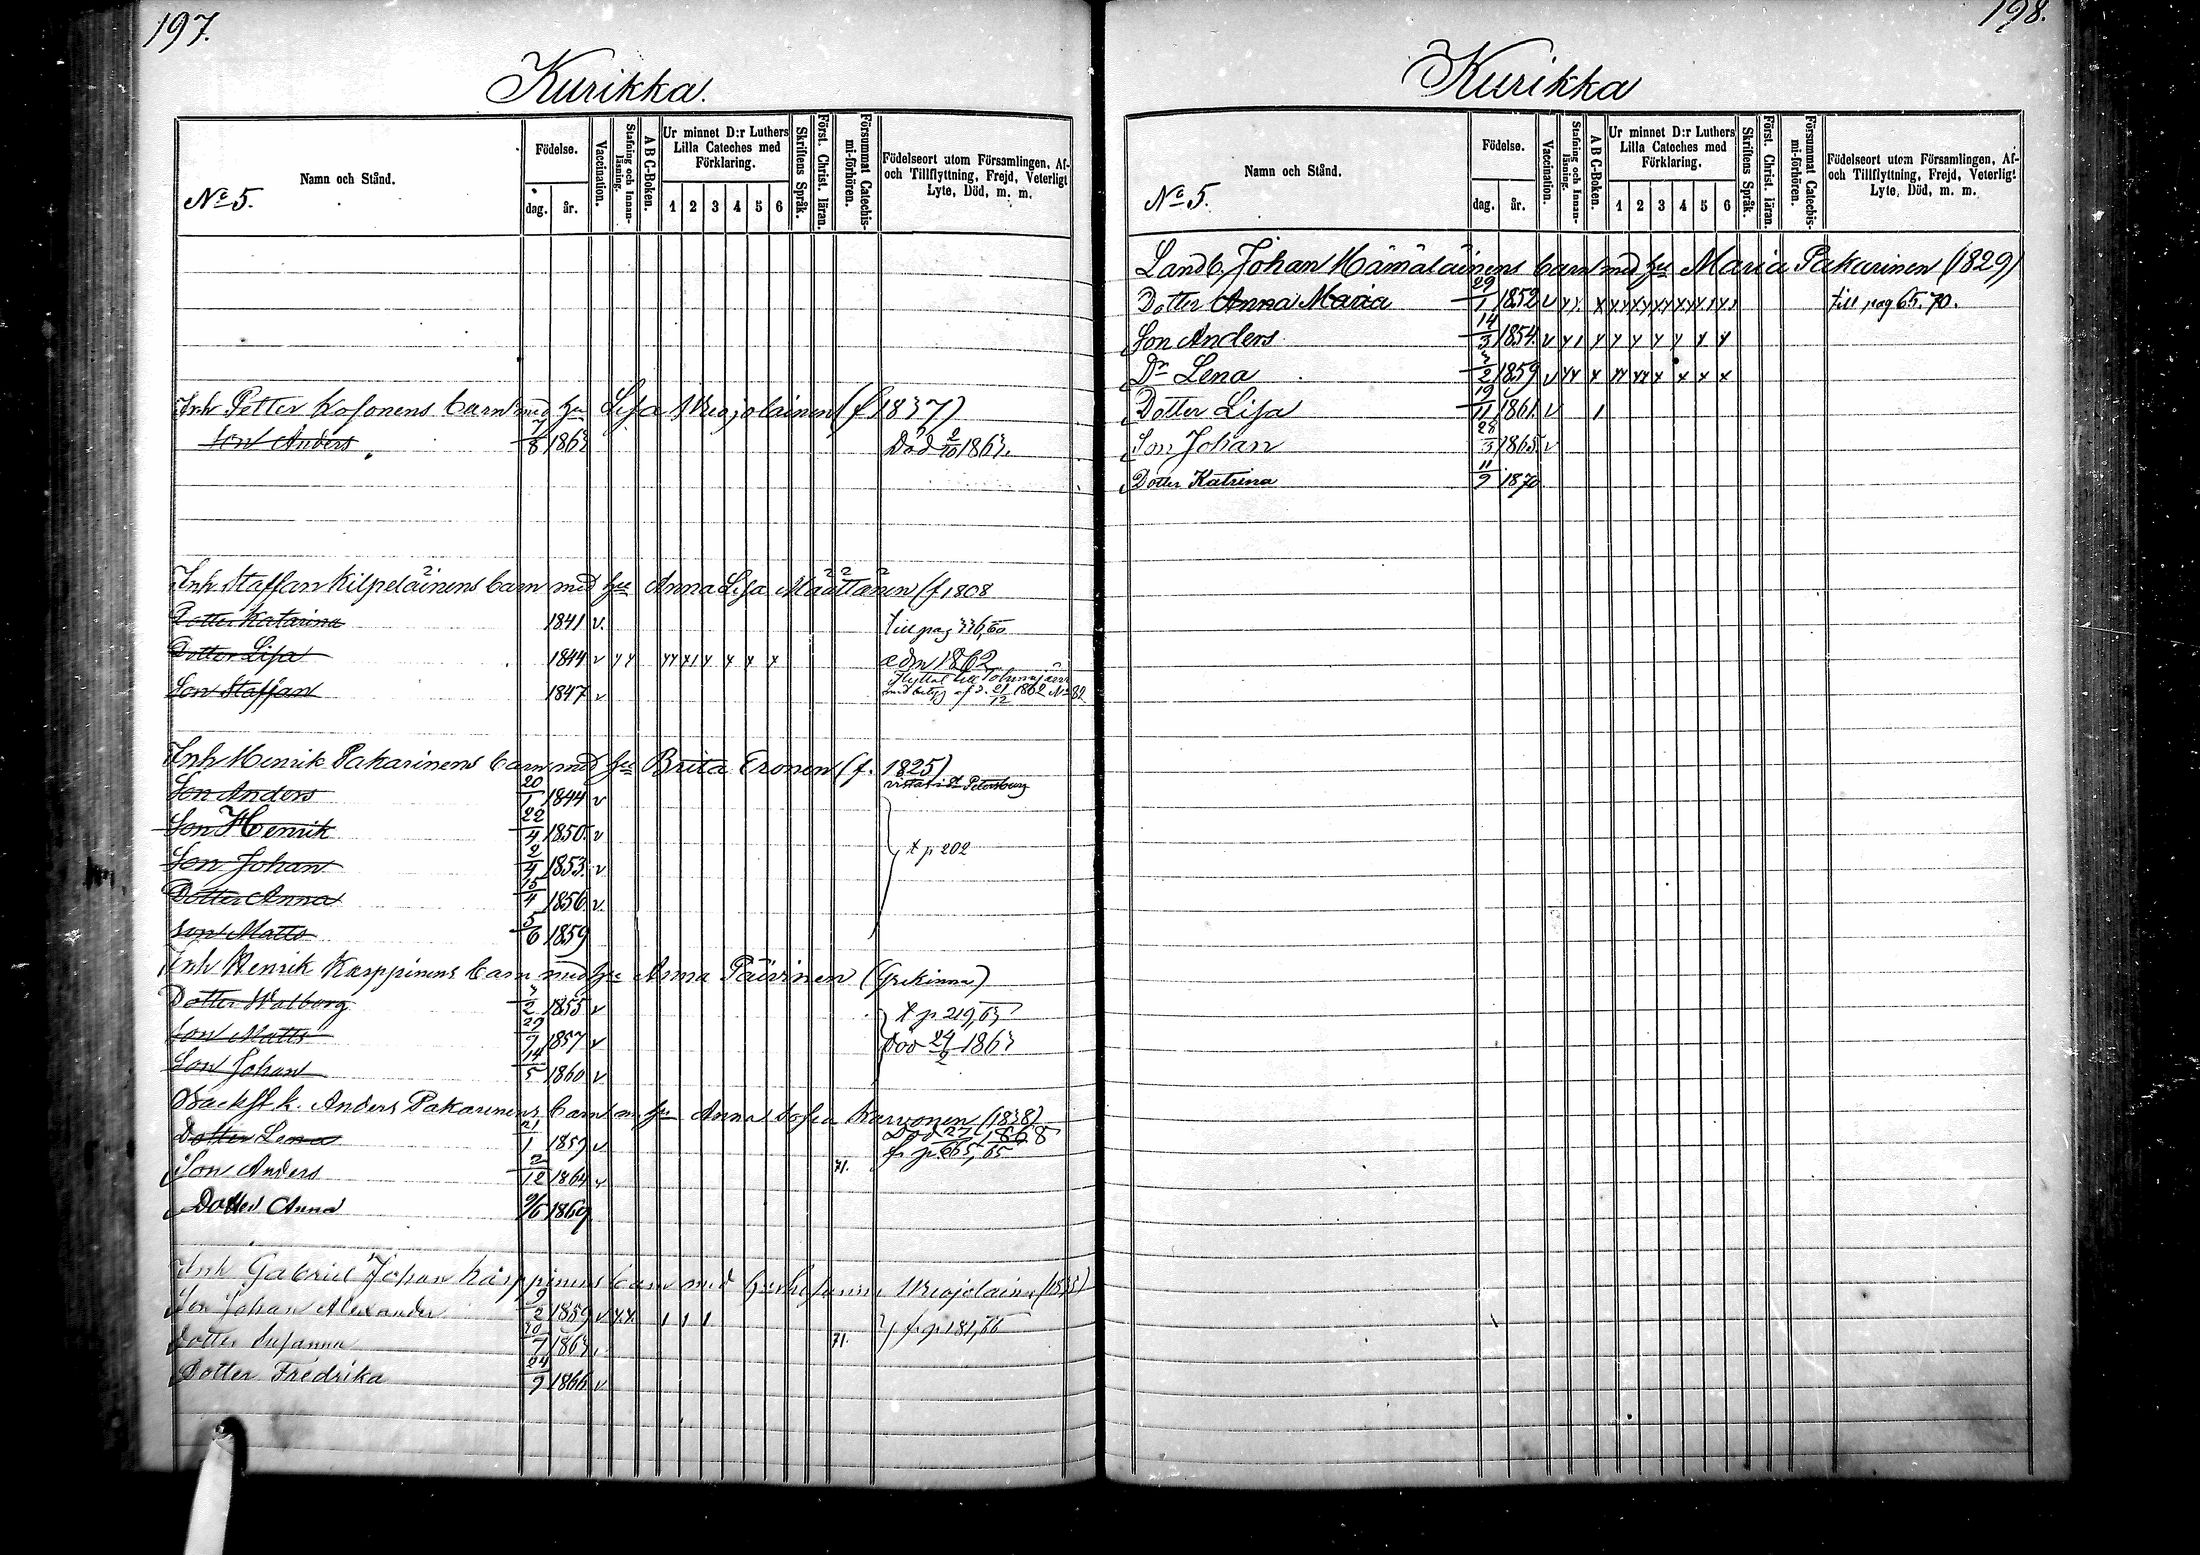 197.
Kurikka.
No 5.
Namn och Stånd.
Födelse.
dag.
år.
Vaccination.
Stafning och Innanläsning.
A B C-Boken.
Ur minnet D:r Luthers
Lilla Cateches med
Förklaring.
1 2 3 4 5 6
Skriftens Språk.
Först. Christ. läran.
Försummat Catechismi-förhören.
Födelseort utom Församlingen, Af-
och Tillflyttning, Frejd, Veterligt
Lyte, Död, m. m.
Inh Petter Kosonens barn med hu Lisa (f 1837)
Son Anders 7/8 1863 Död 2/10 1863.
Inh Staffan Kilpeläinens barn med hu Anna Lisa Määttänen (f 1808
Dotter Katarina 1841 v. till pag 336,60
Dotter Lisa 1844 v adm 1862
Son Staffan 1847 v Flyttat till Tohmajärvi
med betyg af d. 21/12 1862 No 82
Inh Henrik Pakarinens barn med hu Brita Eronen (f. 1825)
Son Anders 20/1 1844 v vistas i St Petersburg
Son Henrik 22/4 1850. v
Son Johan 2/4 1853. v t p 202
Dotter Anna 15/4 1856 v.
Son Matts 5/6 1859
Inh Henrik Karppinens barn med hu Anna Päivinen (Grekinna)
Dotter Walborg 3/2 1855 v t p 219,63
Son Matts 29/9 1857 v Död 24/2 1863
Son Johan 14/5 1860 v.
Backst.k. Anders Pakarinens barn m. hu Anna Sofia Karvonen (1838)
Dotter Lena 21/1 1859 v Död 1868
Son Anders 2/12 1864 v 71. fr p. 665,65
Dotter Anna 9/6 1869.
Inh Gabriel Johan Karppinens barn med hu
Son Johan Alexander 9/2 1859 v x x 1 1 1 fr p 181,66
Dotter Susanna 30/7 1863 v 71.
Dotter Fredrika 24/9 1866 v
198.
Kurikka
No 5.
Namn och Stånd.
Födelse.
dag.
år.
Vaccination.
Stafning och Innanläsning.
A B C-Boken.
Ur minnet D:r Luthers
Lilla Cateches med
Förklaring.
1 2 3 4 5 6
Skriftens Språk.
Först. Christ. läran.
Försummat Catechismi-förhören.
Födelseort utom Församlingen, Af-
och Tillflyttning, Frejd, Veterligt
Lyte, Död, m. m.
Landb. Johan Hämäläinens barn med hu Maria Pakarinen (1829)
Dotter Anna Maria 29/1 1852 v till pag 65. 70.
Son Anders 14/3 1854. v
Dr Lena 3/2 1859 v
Dotter Lisa 19/11 1861. v 1
Son Johan 28/3 1865. v
Dotter Katrina 11/9 1870